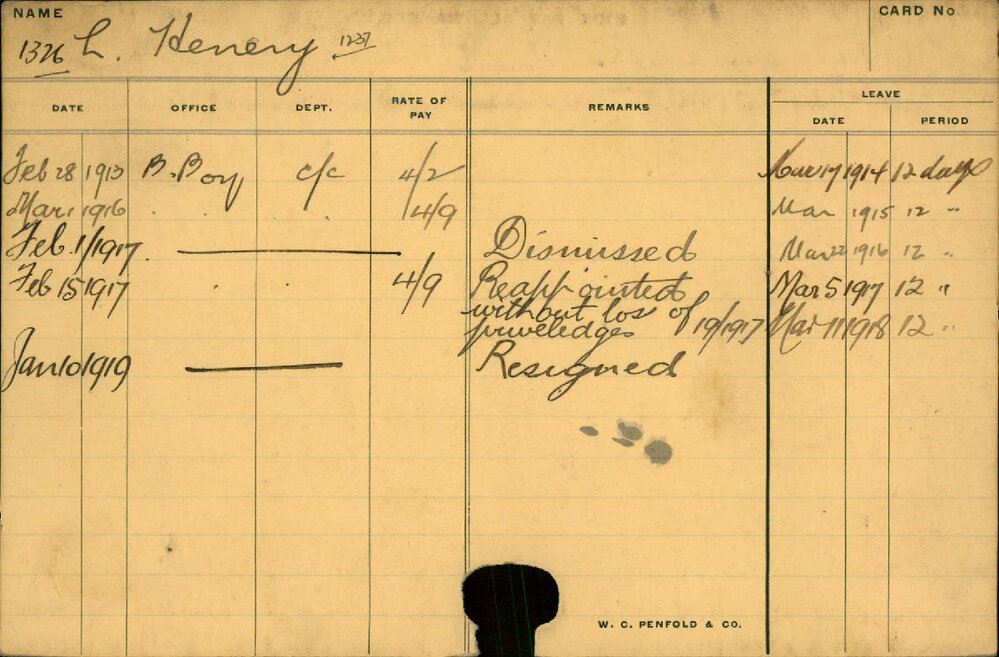 NAME
CARD No.
1326 L. Henery 1237
DATE OFFICE DEPT. RATE OF PAY REMARKS LEAVE
DATE PERIOD
Feb 28 1913 B. Boy c/c 4/2 Mar 17 1914 12 days
Mar 1 1916 . . . 4/9 Mar 1915 12 "
Feb. 1/1917. Dismissed Mar 22 1916 12 "
Feb 15 1917 . . 4/9 Reappointed Mar 5 1917 12 "
without loss of
priveledges 19/1917 Mar 11 1918 12 "
Jan 10 1919 Resigned
W. C. PENFOLD & CO.